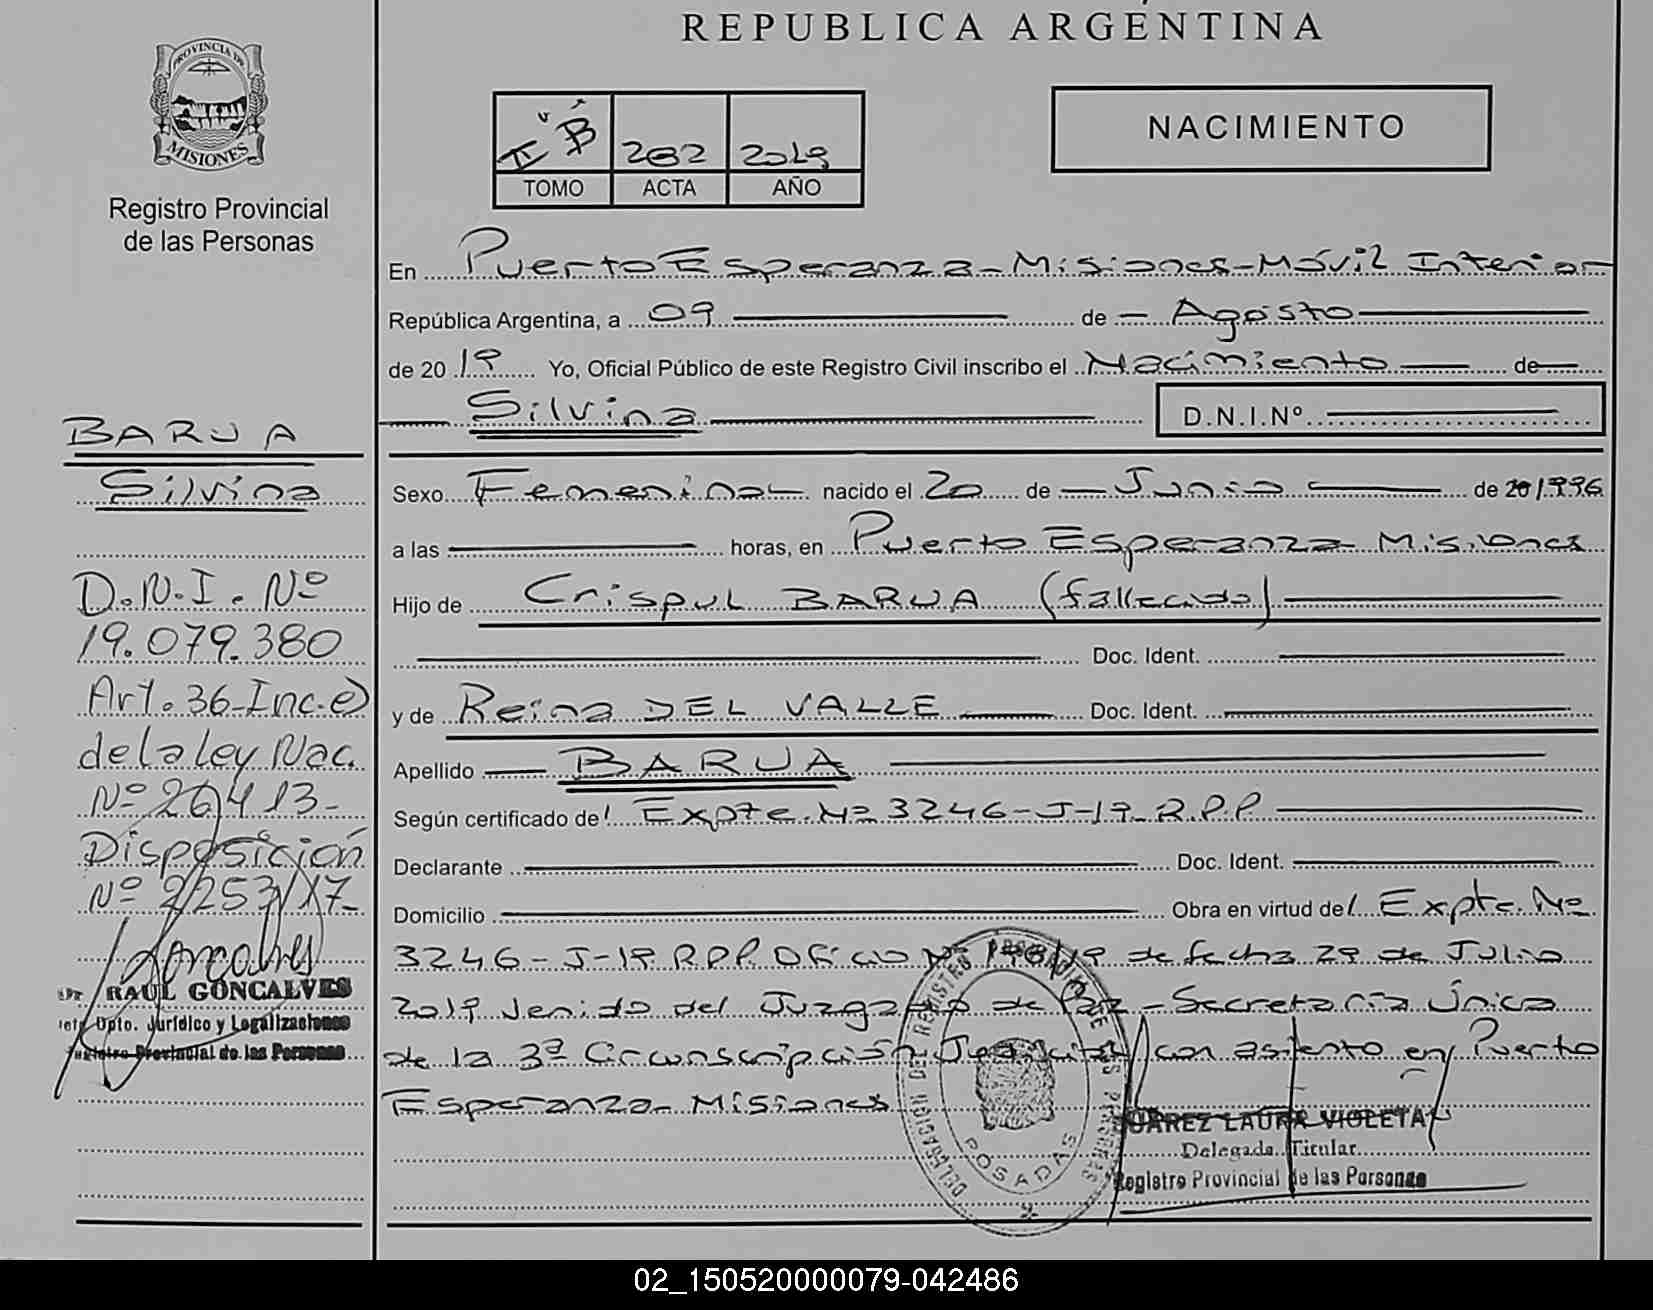 REPUBLICA ARGENTINA
PROVINCIA DE
MISIONES
Registro Provincial
de las Personas
II "B" 282 2019
TOMO ACTA AÑO
NACIMIENTO
En Puerto Esperanza - Misiones - Móvil Interior
República Argentina, a 09 de Agosto
de 2019 Yo, Oficial Público de este Registro Civil inscribo el Nacimiento de
Silvina D.N.I.Nº
Sexo Femenina nacido el 20 de Junio de 1996
a las horas, en Puerto Esperanza Misiones
Hijo de Crispul BARUA (fallecido)
Doc. Ident.
y de Reina DEL VALLE Doc. Ident.
Apellido BARUA
Según certificado del Expte. Nº 3246-J-19 R.P.P
Declarante Doc. Ident.
Domicilio Obra en virtud del Expte. Nº
3246-J-19 R.P.P. Oficio Nº 198/19 de fecha 29 de Julio
2019 venido del Juzgado de Paz - Secretaría Única
de la 3ª Circunscripción Judicial con asiento en Puerto
Esperanza - Misiones
BARUA
Silvina
D.N.I. Nº
19.079.380
Art. 36-Inc.e)
de la ley Nac.
Nº 26413-
Disposición
Nº 2253/17-
Dr. RAUL GONCALVES
Jefe Dpto. Jurídico y Legalizaciones
Registro Provincial de las Personas
POSADAS
SUAREZ LAURA VIOLETA
Delegada Titular
Registro Provincial de las Personas
02_150520000079-042486